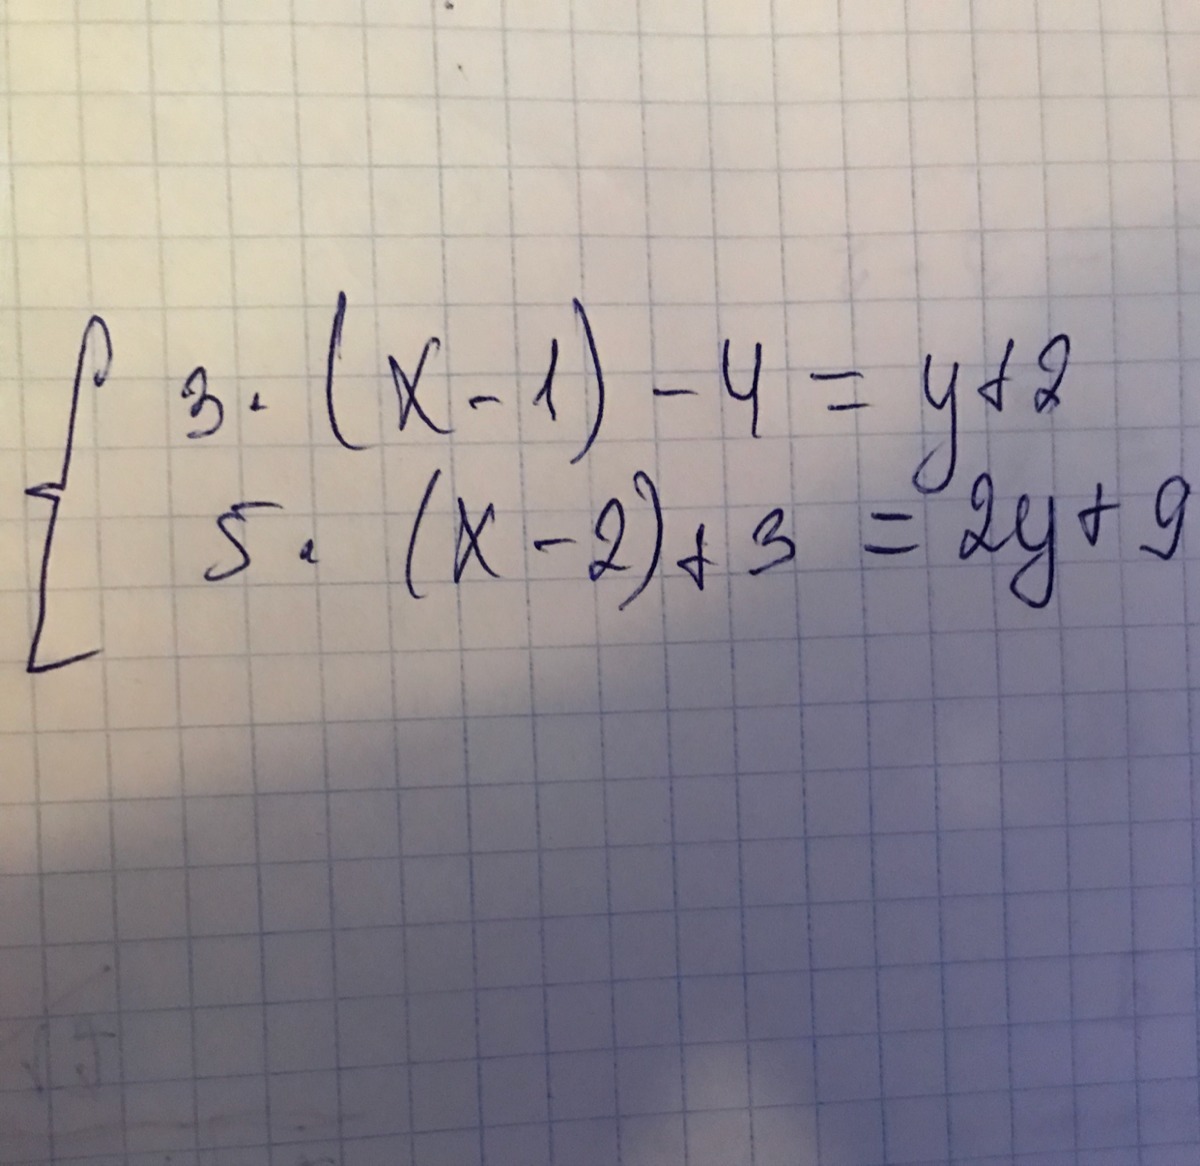 3 · (x - 1) - 4 = y + 2
5 · (x - 2) + 3 = 2y + 9